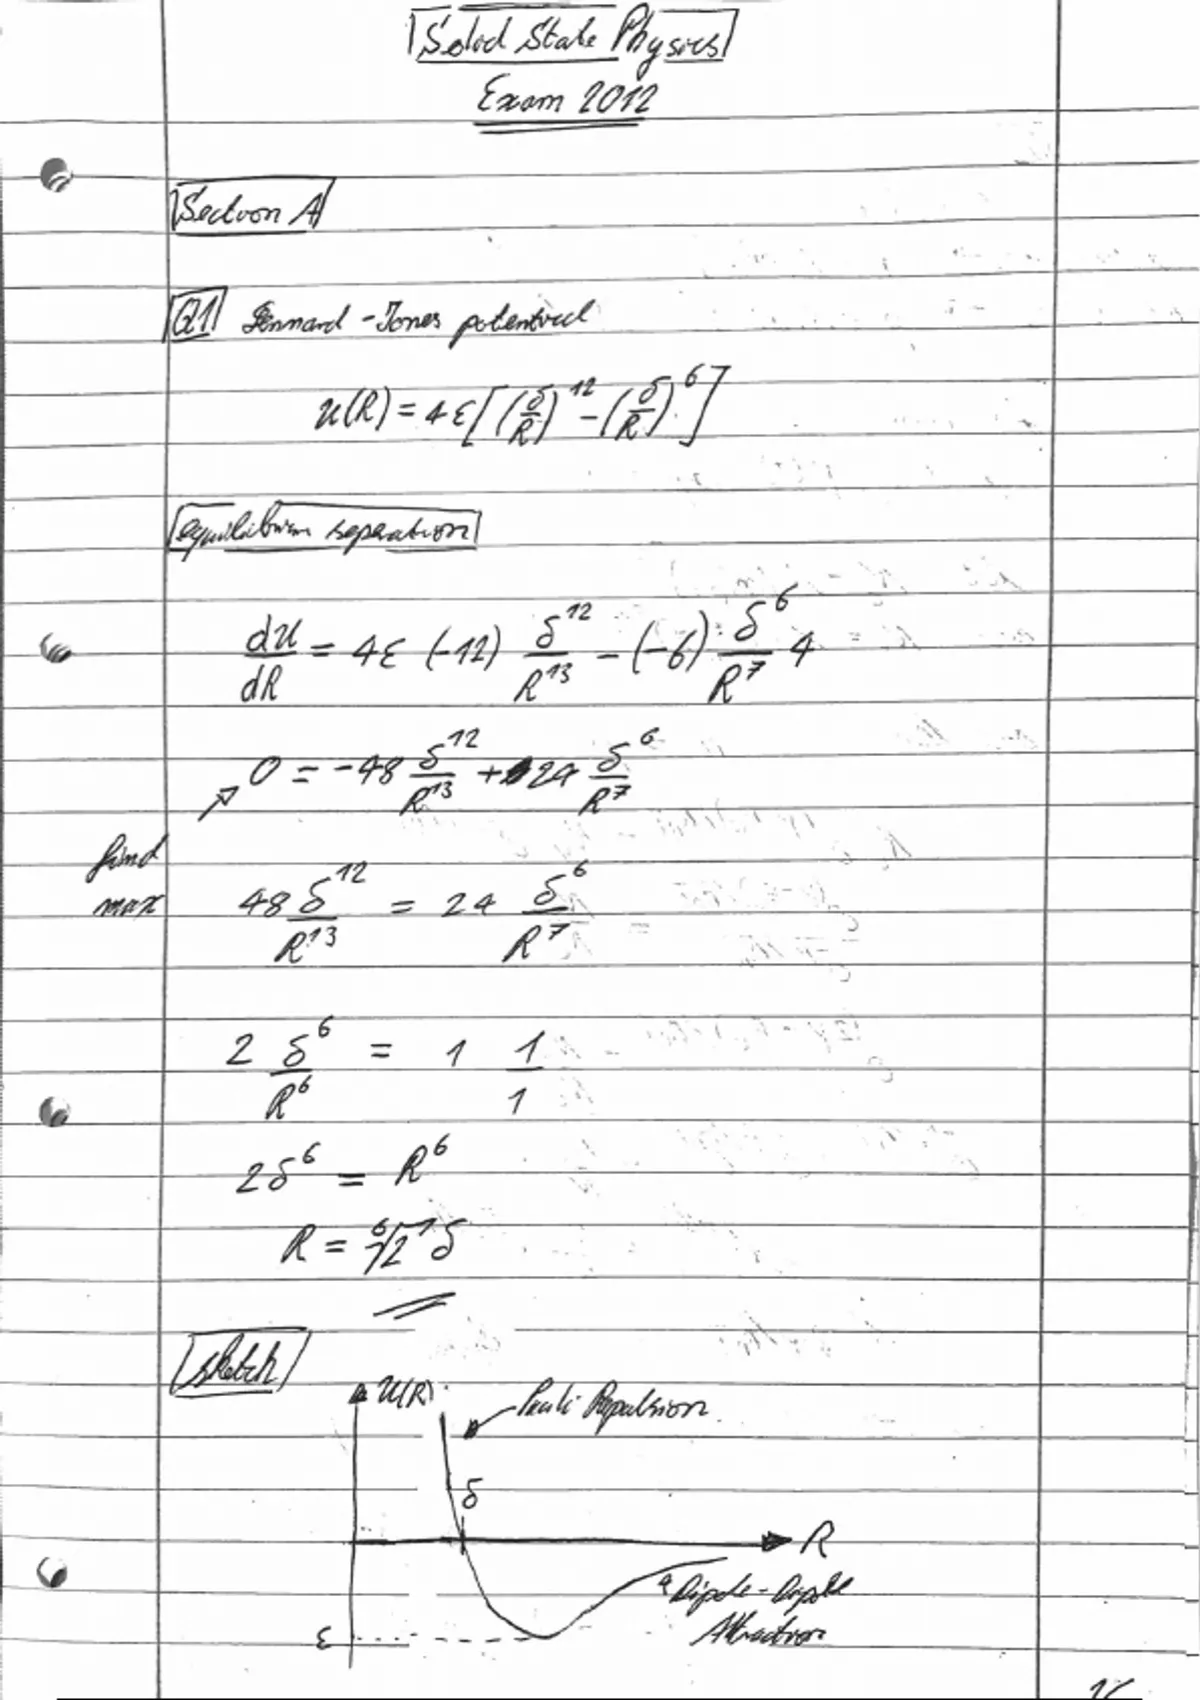 Solid State Physics
Exam 2012
Section A
Q1 Lennard-Jones potential
U(R) = 4ε[(δ/R)^12 - (δ/R)^6]
equilibrium seperation
dU/dR = 4ε (-12) δ^12/R^13 - (-6) · δ^6/R^7 4
0 = -48 δ^12/R^13 + 24 δ^6/R^7
find
max
48 δ^12/R^13 = 24 δ^6/R^7
2 δ^6/R^6 = 1 1/1
2δ^6 = R^6
R = ⁶√2 δ
sketch
U(R)
Pauli Repulsion
δ
R
Dipole-Dipole
Attraction
ε